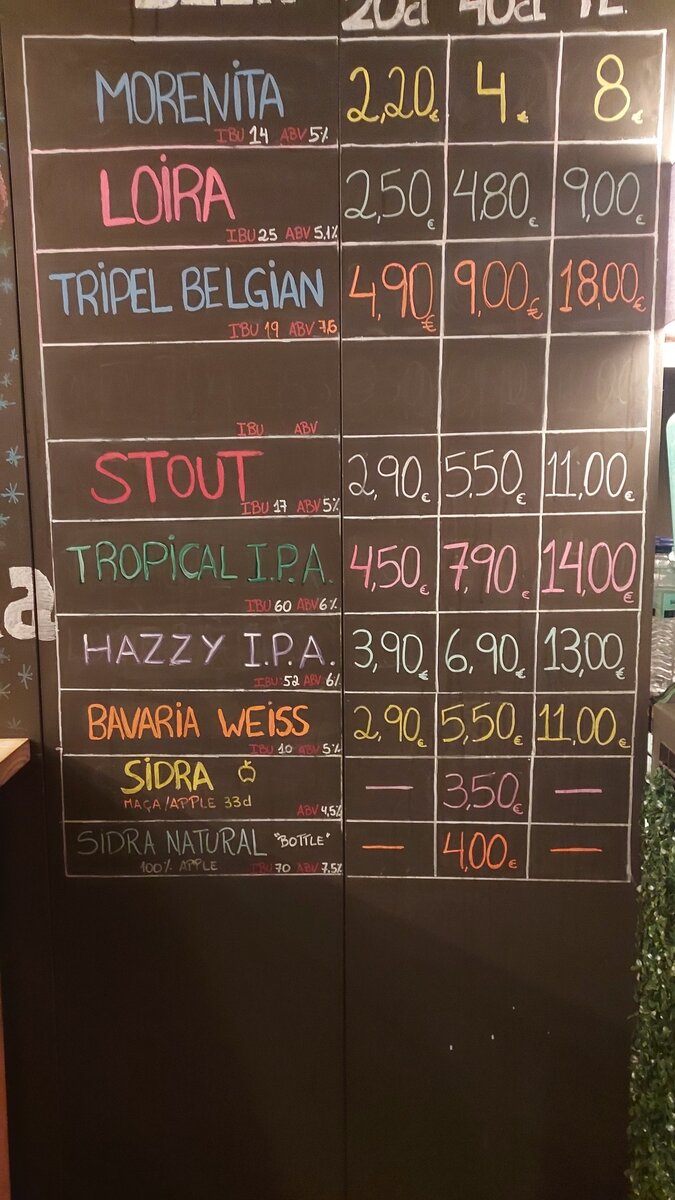 BEER 20cl 40cl 1L
MORENiTA 2,20€ 4€ 8€
IBU 14 ABV 5%
LOiRA 2,50€ 4,80€ 9,00€
IBU 25 ABV 5,1%
TRiPEL BELGiAN 4,90€ 9,00€ 18,00€
IBU 19 ABV 7,6
IBU ABV
STOUT 2,90€ 5,50€ 11,00€
IBU 17 ABV 5%
TROPiCAL I.P.A. 4,50€ 7,90€ 14,00€
IBU 60 ABV 6%
HAZZY I.P.A. 3,90€ 6,90€ 13,00€
IBU 52 ABV 6%
BAVARiA WEiSS 2,90€ 5,50€ 11,00€
IBU 10 ABV 5%
SiDRA — 3,50€ —
MAÇA/APPLE 33cl ABV 4,5%
SiDRA NATURAL "BOTTLE" — 4,00€ —
100% APPLE IBU 70 ABV 7,5%